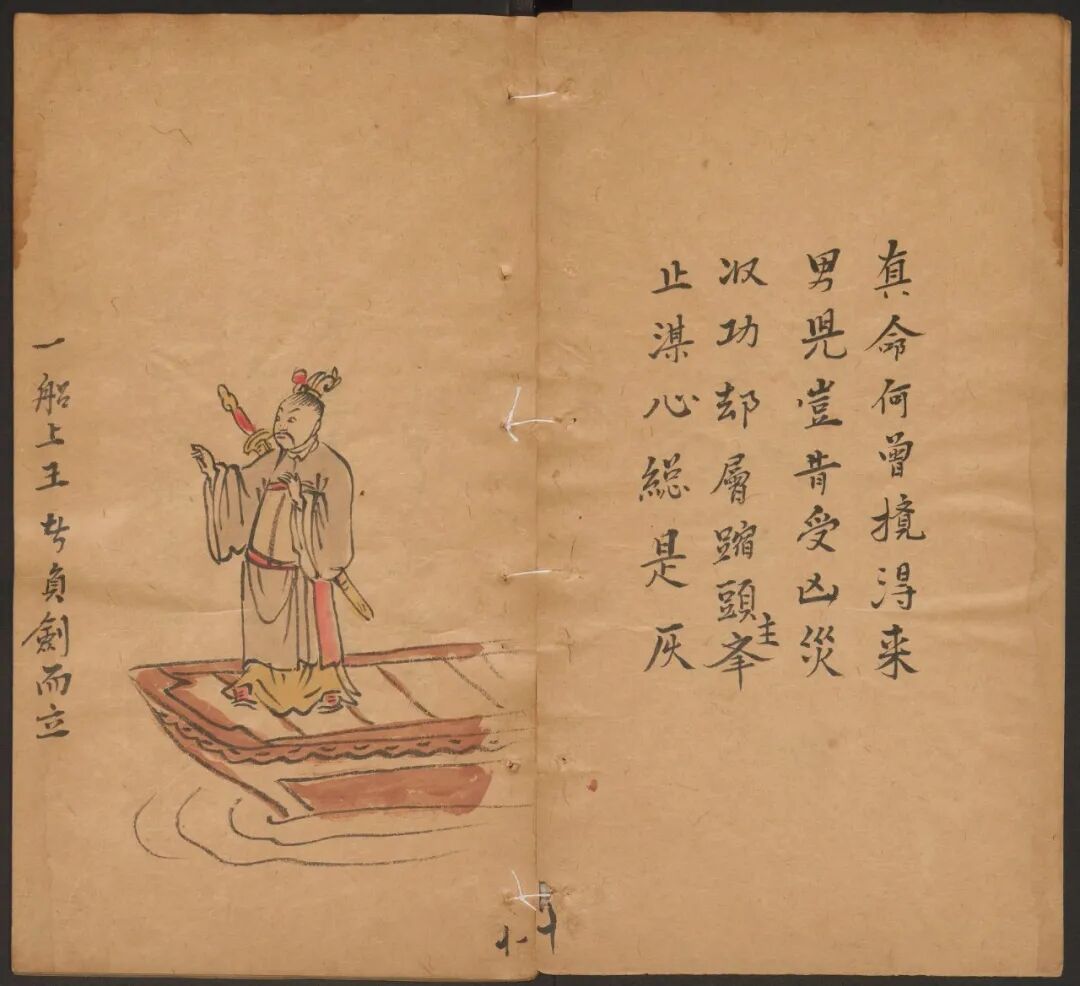 真命何曾撓得来
男児豈昔受凶災
収功却層蹜頭峯主
止渫心緫是灰
一船上王者負劍而立